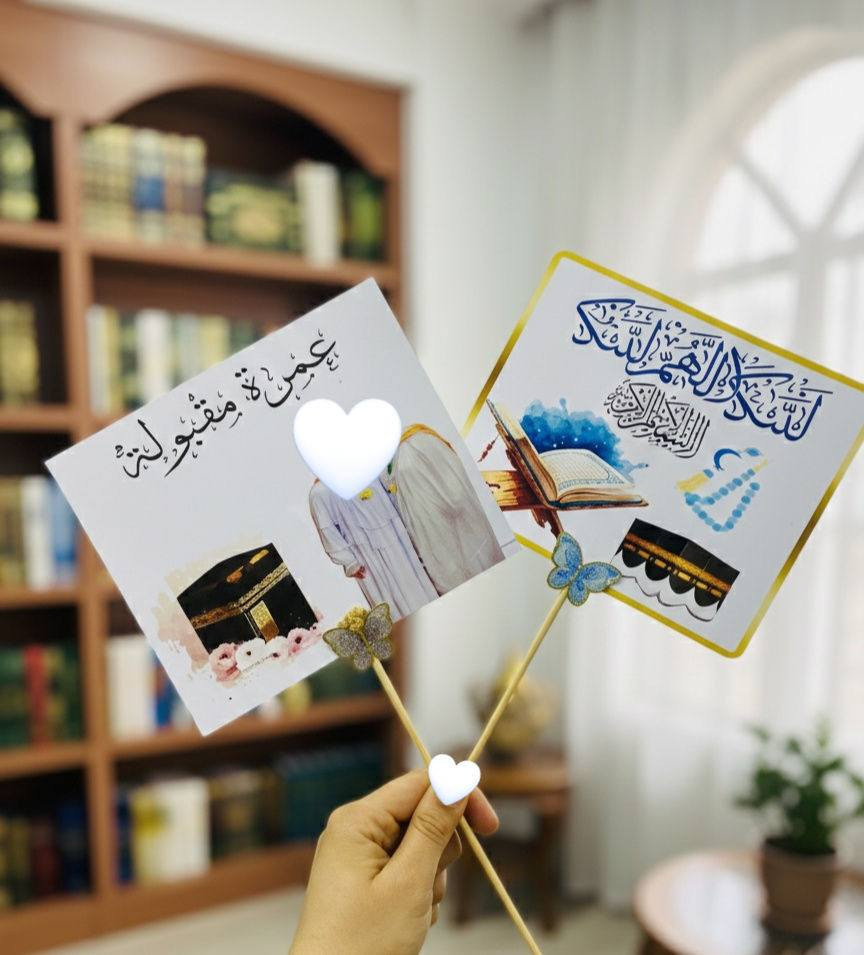 عمرة مقبولة
لبيك اللهم لبيك